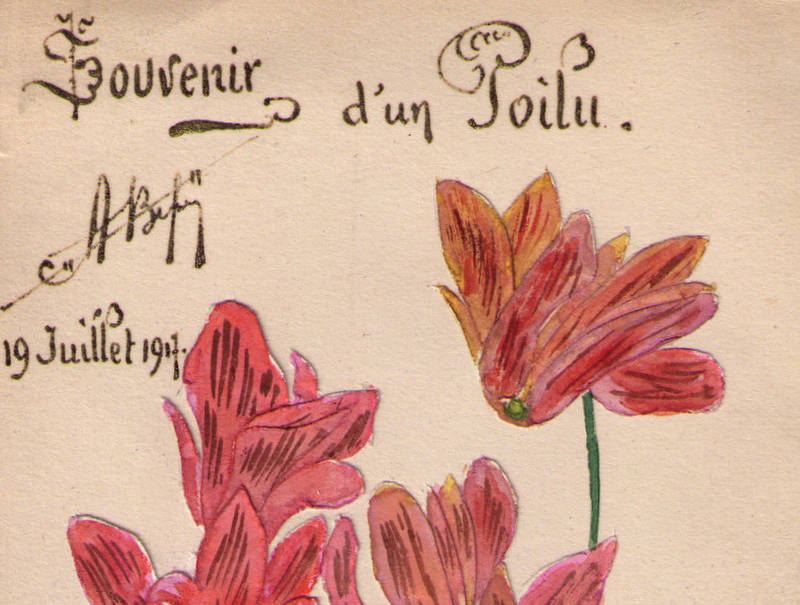 Souvenir d'un Poilu.
19 Juillet 1917.